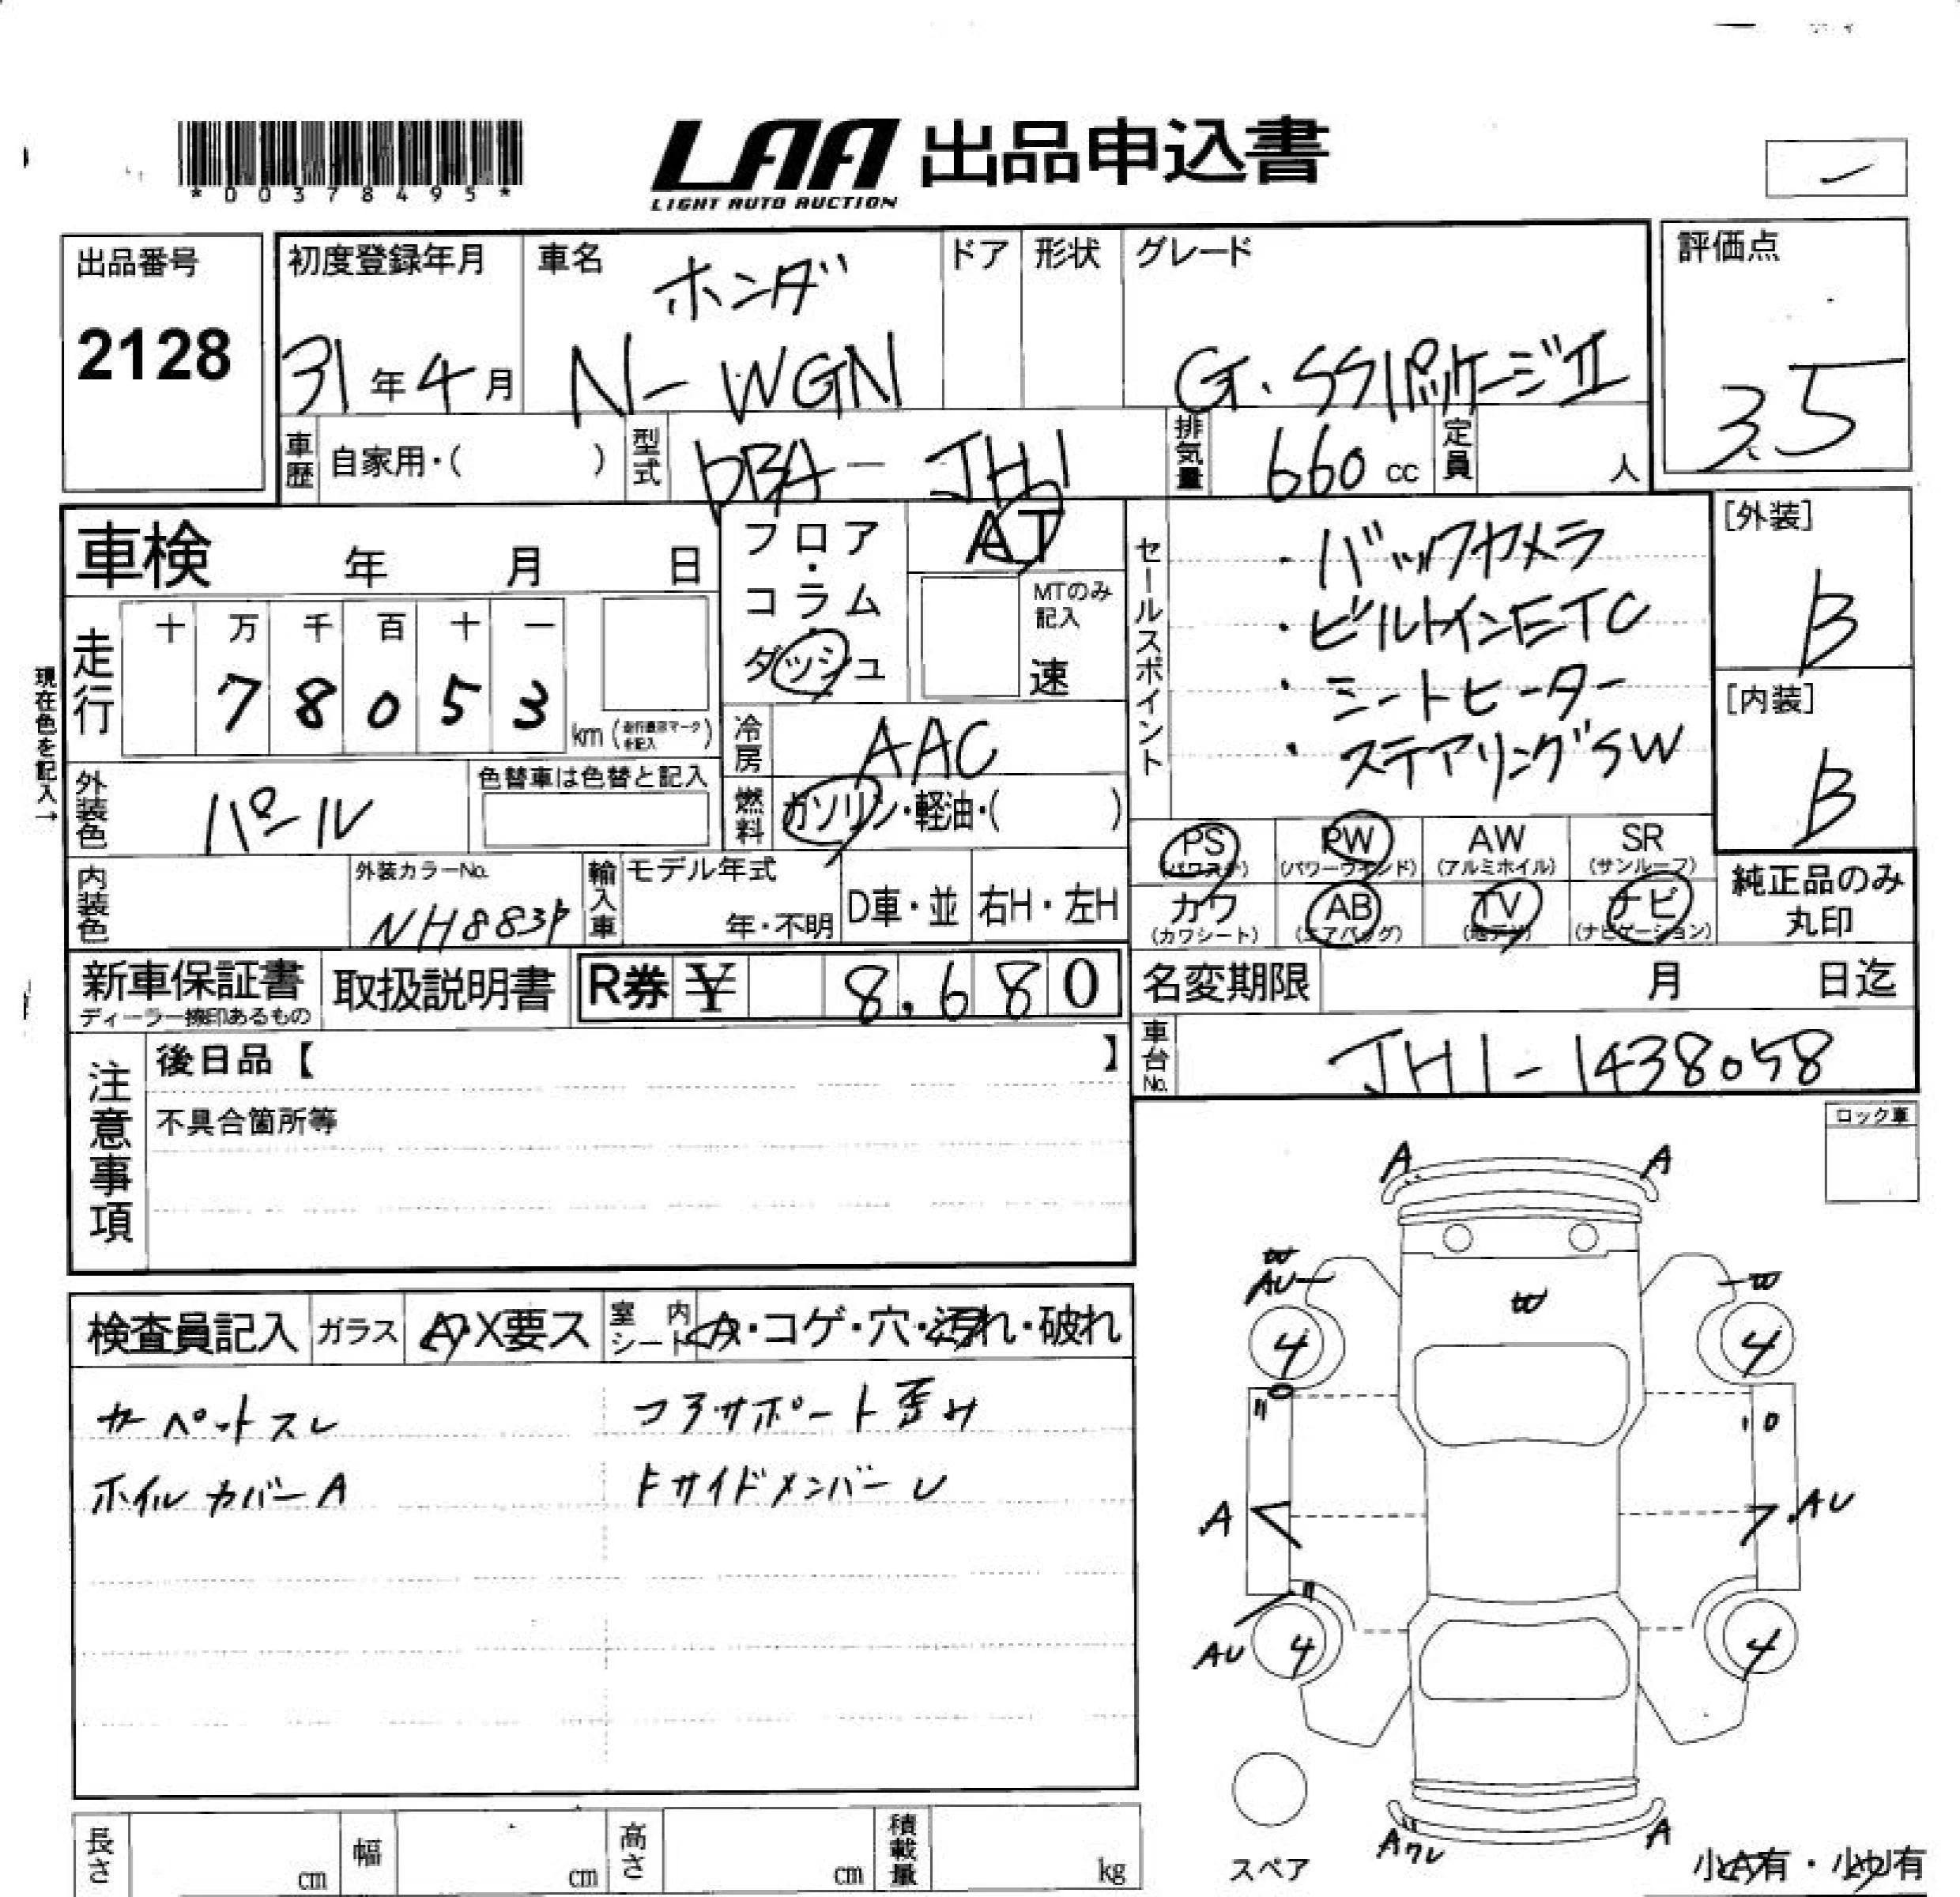 *00378495*
LAA 出品申込書
LIGHT AUTO AUCTION
出品番号
2128
初度登録年月
31年4月
車名
ホンダ
N-WGN
ドア
形状
グレード
G・SSパッケージII
評価点
3.5
車歴
自家用・( )
型式
DBA-JH1
排気量
660cc
定員
人
車検 年 月 日
フロア・コラム・ダッシュ
AT
MTのみ記入
速
セールスポイント
・バックカメラ
・ビルトインETC
・シートヒーター
・ステアリングSW
[外装]
B
[内装]
B
現在色を記入→
走行
十 万 千 百 十 一
7 8 0 5 3
km
冷房
AAC
外装色
パール
色替車は色替と記入
燃料
ガソリン・軽油・( )
PS
(パワステ)
PW
(パワーウインド)
AW
(アルミホイル)
SR
(サンルーフ)
カワ
(カワシート)
AB
(エアバッグ)
TV
(地デジ)
ナビ
(ナビゲーション)
純正品のみ丸印
内装色
外装カラーNo.
NH883P
輸入車
モデル年式
年・不明
D車・並
右H・左H
新車保証書
ディーラー捺印あるもの
取扱説明書
R券 ¥ 8,680
名変期限 月 日迄
車台No.
JH1-1438058
注意事項
後日品【 】
不具合箇所等
ロック車
検査員記入
ガラス
A・X要ス
室内シート
A・コゲ・穴・汚れ・破れ
カーペットスレ
コアサポート歪み
ホイルカバーA
FサイドメンバーU
A
A
W
AU
W
W
4
4
A
AU
AU
4
4
Aワレ
A
スペア
小A有・小U有
長さ cm
幅 cm
高さ cm
積載量 kg